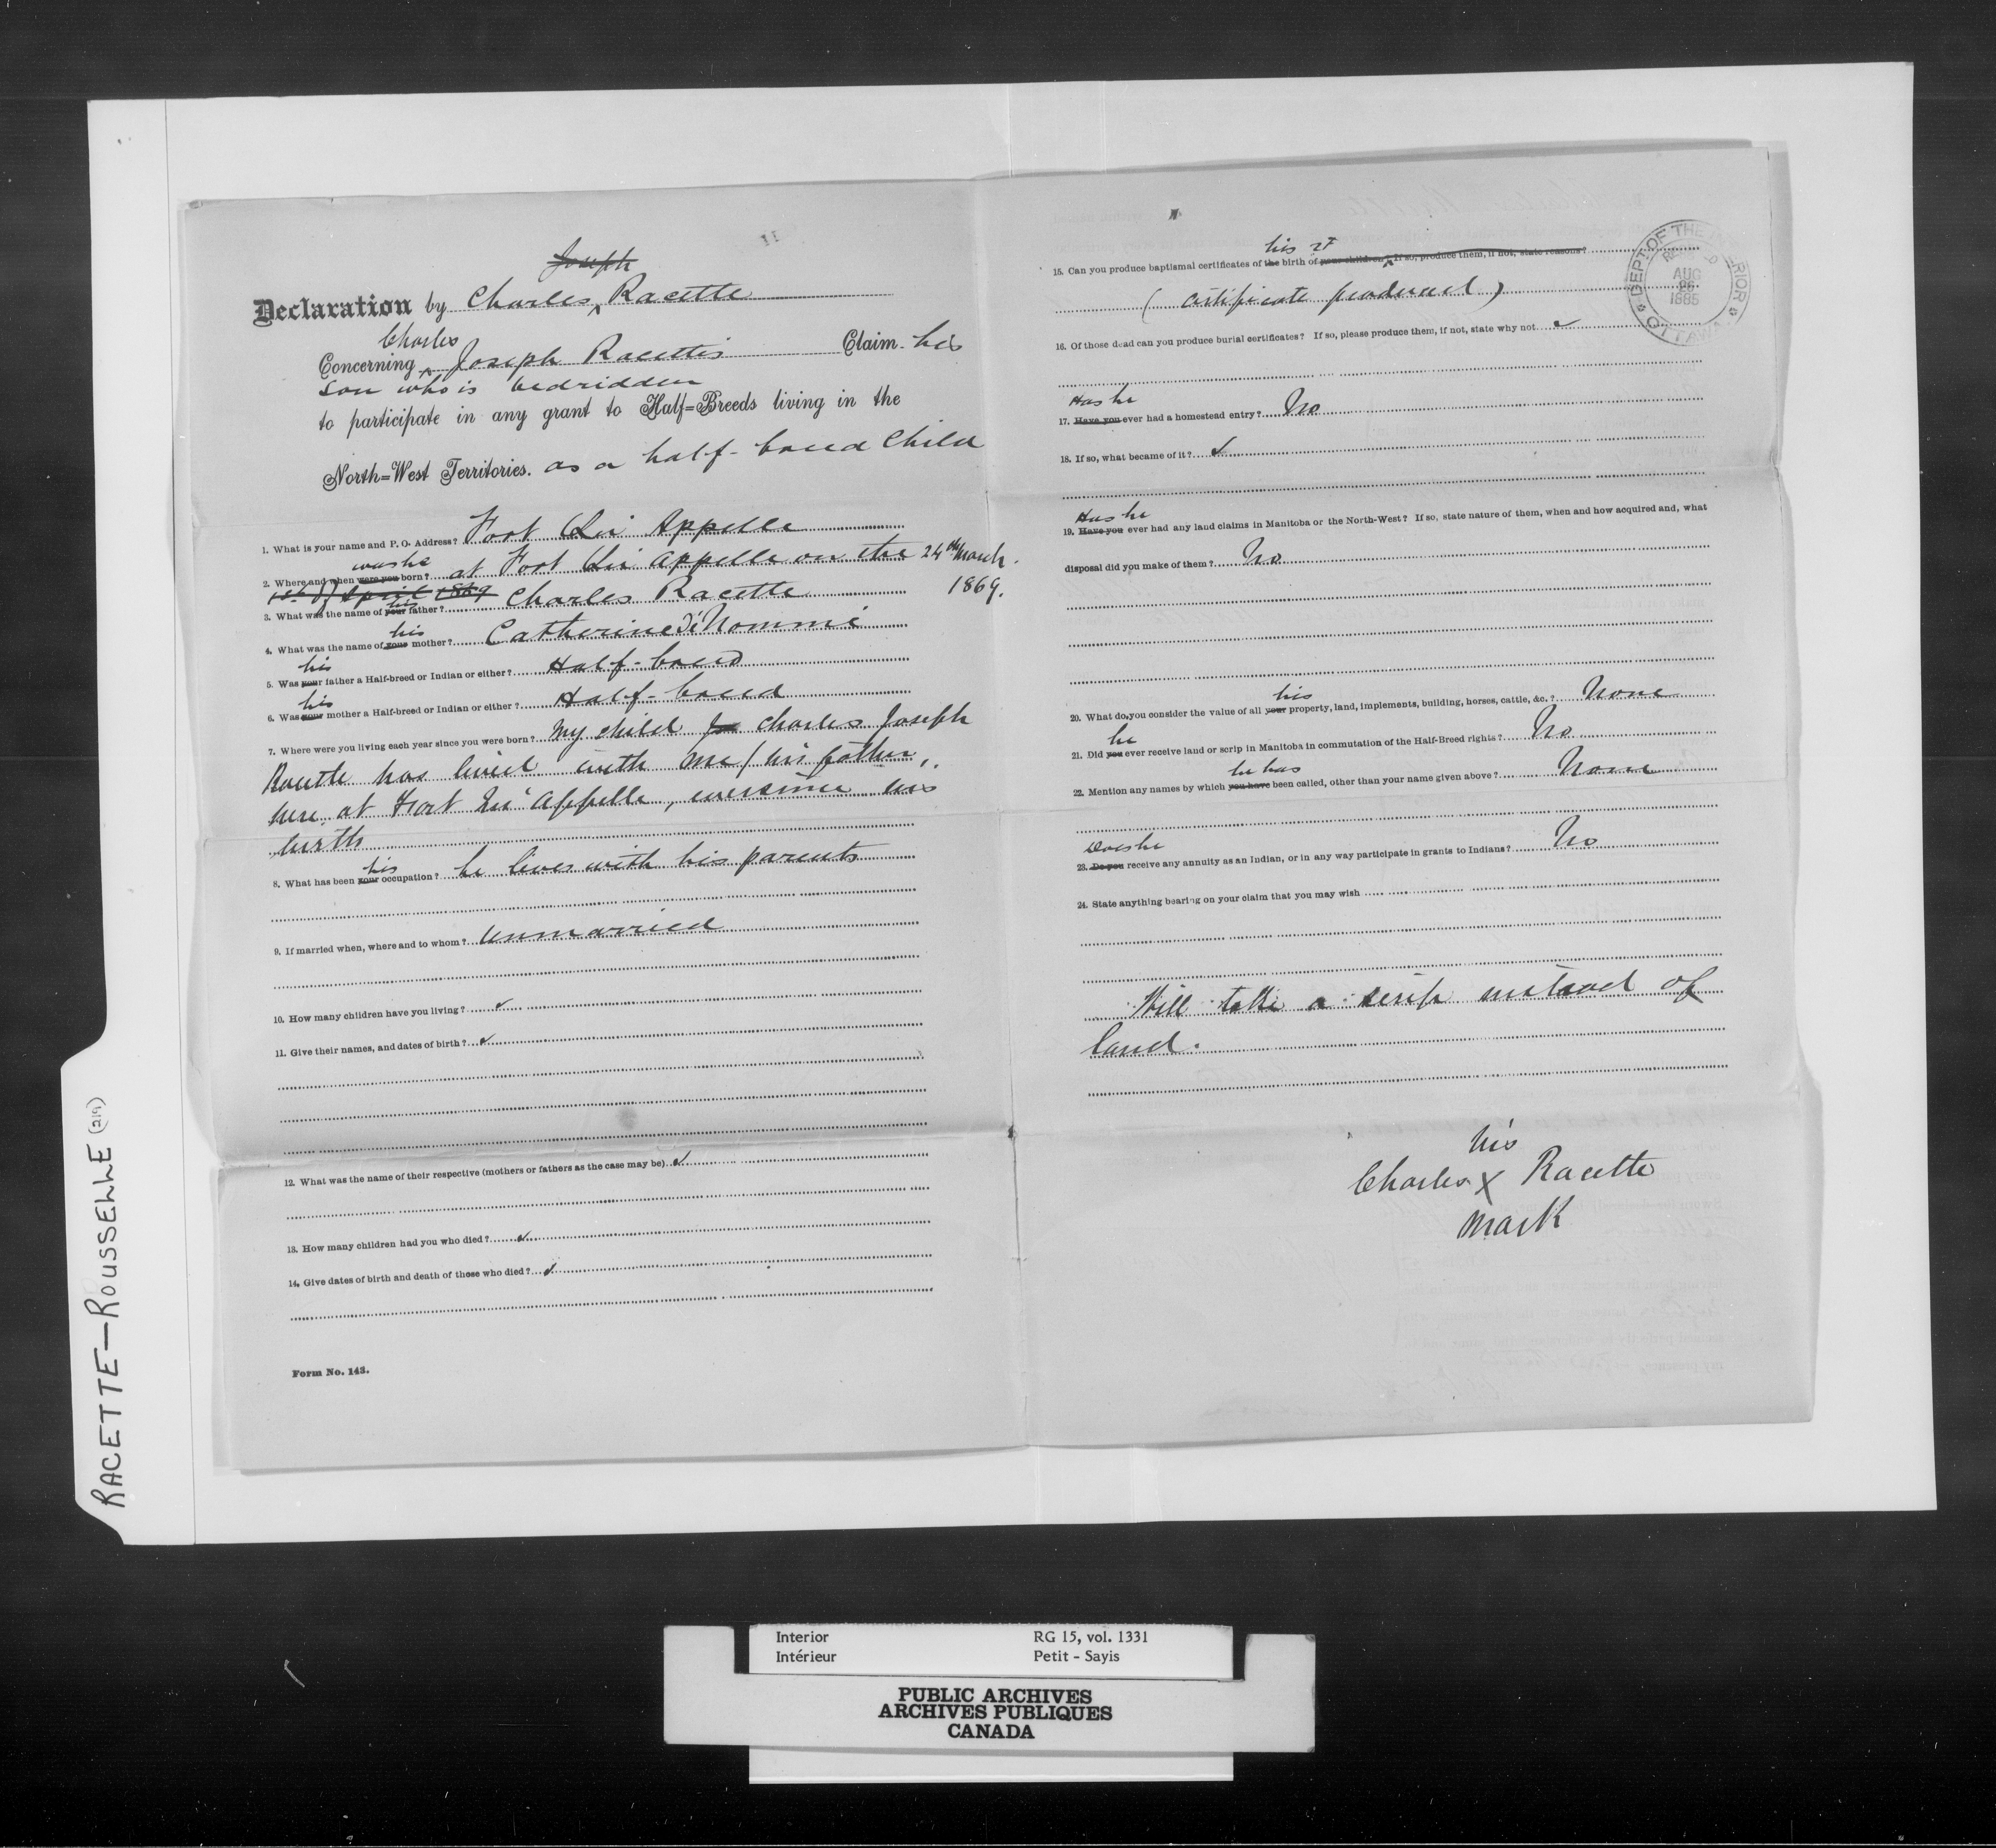 RACETTE—ROUSSELLE (219)
Joseph
Declaration by Charles ^ Racette
Charles
Concerning ^ Joseph Racette's Claim his
son who is bedridden
to participate in any grant to Half=Breeds living in the
North=West Territories. as a half-breed Child
1. What is your name and P. O. Address? Fort Qu' Appelle
was he
2. Where and when were you born? at Fort Qu' Appelle on the 24th March.
1st of April 1869 1869.
his
3. What was the name of your father? Charles Racette
his
4. What was the name of your mother? Catherine Di Nommé
his
5. Was your father a Half-breed or Indian or either? Half-breed
his
6. Was your mother a Half-breed or Indian or either? Half-breed
7. Where were you living each year since you were born? My child Jo Charles Joseph
Racette has lived with me / his father,
here at Fort Qu' Appelle, ever since his
birth
his
8. What has been your occupation? he lives with his parents
9. If married when, where and to whom? Unmarried
10. How many children have you living? ✓
11. Give their names, and dates of birth? ✓
12. What was the name of their respective (mothers or fathers as the case may be). ✓
13. How many children had you who died? ✓
14. Give dates of birth and death of those who died? ✓
Form No. 143.
his
15. Can you produce baptismal certificates of the birth of your children? If so, produce them, if not, state reasons?
( Certificate produced )
16. Of those dead can you produce burial certificates? If so, please produce them, if not, state why not ✓
Has he
17. Have you ever had a homestead entry? No
18. If so, what became of it? ✓
Has he
19. Have you ever had any land claims in Manitoba or the North-West? If so, state nature of them, when and how acquired and, what
disposal did you make of them? No
his
20. What do you consider the value of all your property, land, implements, building, horses, cattle, &c.? None
he
21. Did you ever receive land or scrip in Manitoba in commutation of the Half-Breed rights? No
he has
22. Mention any names by which you have been called, other than your name given above? None
Does he
23. Do you receive any annuity as an Indian, or in any way participate in grants to Indians? No
24. State anything bearing on your claim that you may wish
Will take a scrip instead of
land.
his
Charles X Racette
mark
DEPT OF THE INTERIOR
RECEIVED
AUG
26
1885
OTTAWA
Interior RG 15, vol. 1331
Intérieur Petit - Sayis
PUBLIC ARCHIVES
ARCHIVES PUBLIQUES
CANADA